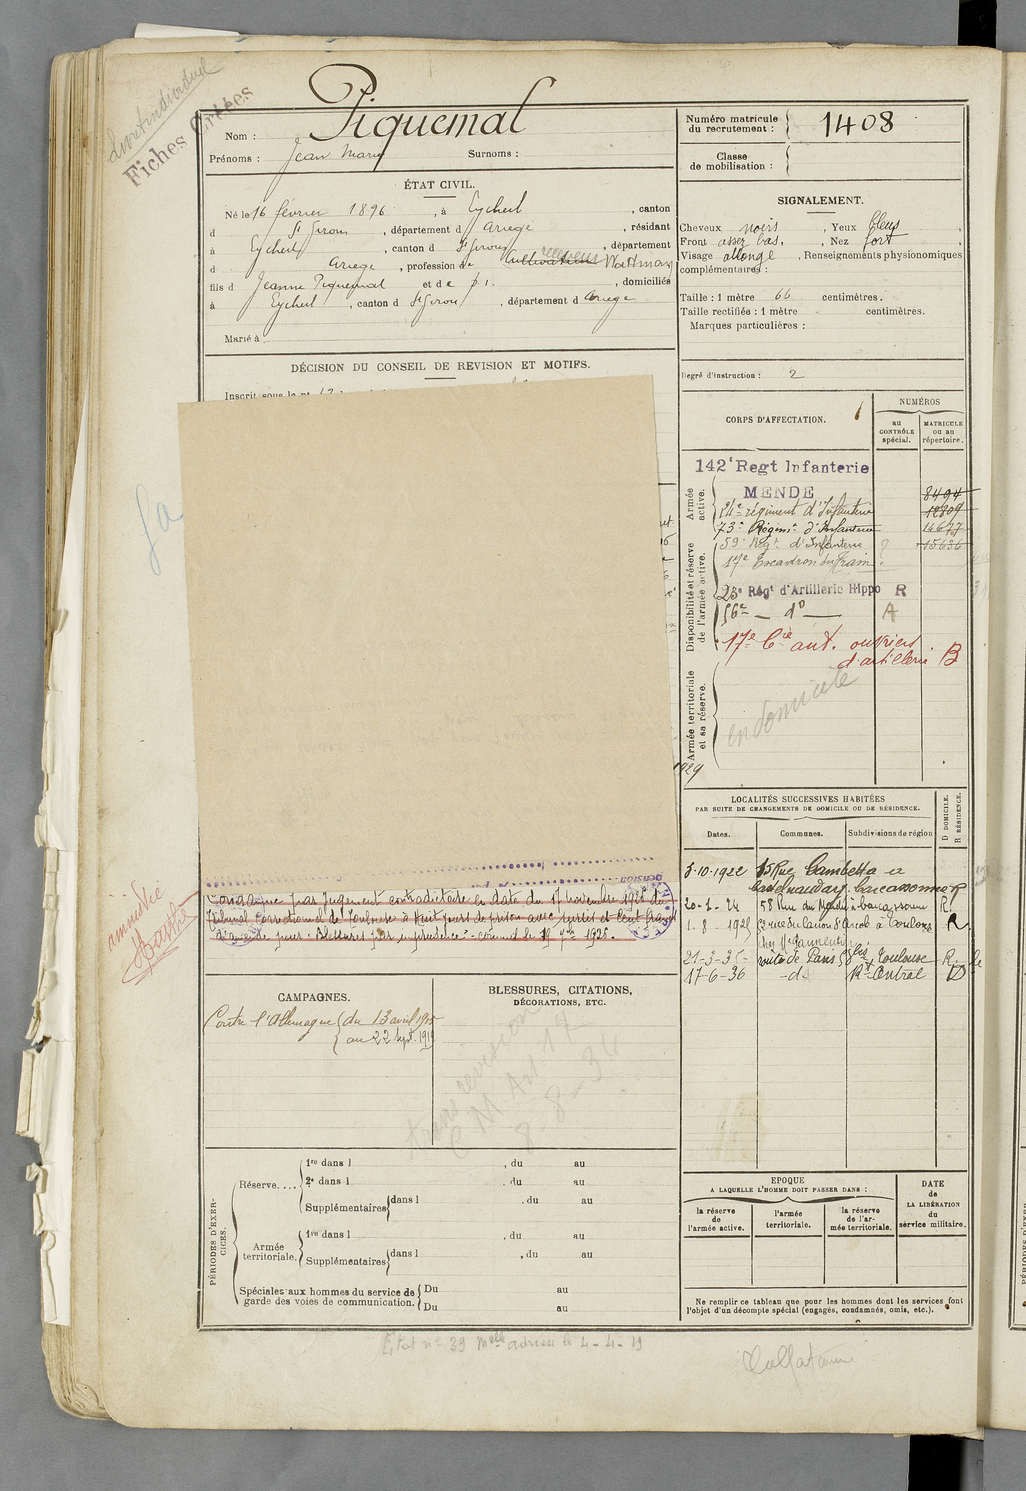 Livret individuel
Fiches Créées
Nom : Piquemal
Prénoms : Jean Marie Surnoms :
Numéro matricule du recrutement : 1408
Classe de mobilisation :
ÉTAT CIVIL.
Né le 16 février 1896, à Eycheil, canton
d St Girons, département d Ariège, résidant
à Eycheil, canton d St Girons, département
d Ariège, profession de Cultivateur Wattman
fils d Jeanne Piquemal et de p. i., domiciliés
à Eycheil, canton d St Girons, département d Ariège
Marié à
DÉCISION DU CONSEIL DE REVISION ET MOTIFS.
Inscrit sous le n°
SIGNALEMENT.
Cheveux noirs, Yeux bleus,
Front assez bas, Nez fort
Visage allongé, Renseignements physionomiques
complémentaires :
Taille : 1 mètre 66 centimètres.
Taille rectifiée : 1 mètre centimètres.
Marques particulières :
Degré d'instruction : 2
CORPS D'AFFECTATION.
NUMÉROS
au CONTRÔLE spécial.
MATRICULE ou au répertoire.
Armée active.
142e Regt Infanterie
MENDE 8494
14e régiment d'Infanterie
73e Régimt d'Infanterie
59e Regt d'Infanterie 15636
Disponibilité et réserve de l'armée active.
17e Escadron du train.
23e Régt d'Artillerie Hippo R
56e — do — A
17e Cie aut. ouvriers
d'artillerie B
Armée territoriale et sa réserve.
en domicile
1929
LOCALITÉS SUCCESSIVES HABITÉES
PAR SUITE DE CHANGEMENTS DE DOMICILE OU DE RÉSIDENCE.
Dates. Communes. Subdivisions de région
D DOMICILE.
R RÉSIDENCE.
3-10-1922 15 Rue Gambetta à
Castelnaudary Carcassonne R
20-1-24 58 Rue du R.
1.8.1925 à Toulouse R
21-3-35- route de Paris 58bis Toulouse R.
17-6-36 -d- Rt Central D
amnistié
Condamné par Jugement contradictoire en date du 17 novembre 1925 du
Tribunal Correctionnel de Toulouse à huit jours de prison avec sursis et cent francs
d'amende pour "Blessures par imprudence" - commis le 19 7bre 1925.
CAMPAGNES.
Contre l'Allemagne du 13 avril 1915
au 22 Sept. 1919
BLESSURES, CITATIONS, DÉCORATIONS, ETC.
trans révision
C M Art 19
8-8-34
PÉRIODES D'EXERCICES.
Réserve....
1re dans l , du au
2e dans l , du au
Supplémentaires dans l , du au
Armée territoriale.
1re dans l , du au
Supplémentaires dans l , du au
Spéciales aux hommes du service de garde des voies de communication.
Du au
Du au
EPOQUE
A LAQUELLE L'HOMME DOIT PASSER DANS :
la réserve de l'armée active.
l'armée territoriale.
la réserve de l'armée territoriale.
DATE de LA LIBÉRATION du service militaire.
Ne remplir ce tableau que pour les hommes dont les services font
l'objet d'un décompte spécial (engagés, condamnés, omis, etc.).
État n° 39 Melle adressé le 4-4-19